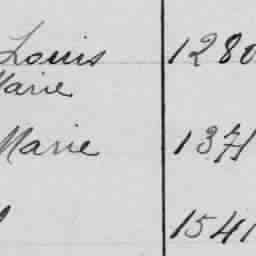 Louis 1280
Marie
Marie 1371
1541